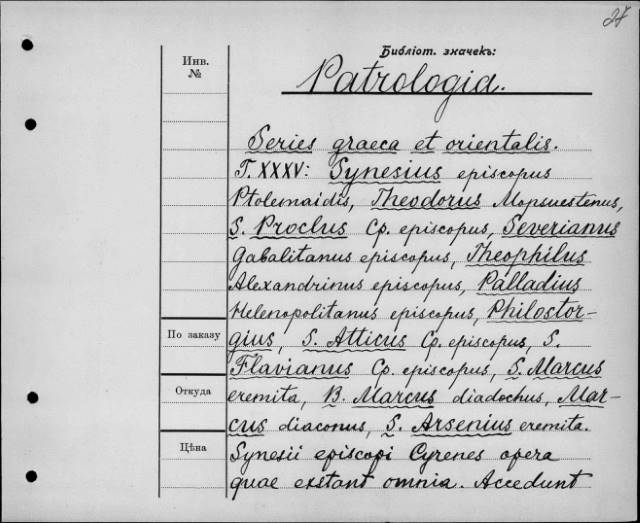 27
Библіот. значекъ:
Инв.
№
Patrologia.
Series graeca et orientalis.
T. XXXV: Synesius episcopus
Ptolemaidis, Theodorus Mopsuestenus,
S. Proclus Cp. episcopus, Severianus
Gabalitanus episcopus, Theophilus
Alexandrinus episcopus, Palladius
Helenopolitanus episcopus, Philostor-
По заказу
gius, S. Atticus Cp. episcopus, S.
Flavianus Cp. episcopus, S. Marcus
Откуда
eremita, B. Marcus diadochus, Mar-
cus diaconus, S. Arsenius eremita.
Цѣна
Synesii episcopi Cyrenes opera
quae exstant omnia. Accedunt